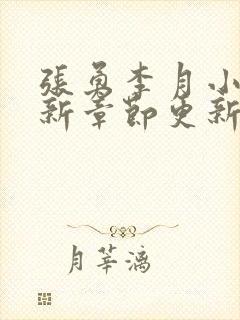 張勇李月小
新章節更新
月華漓